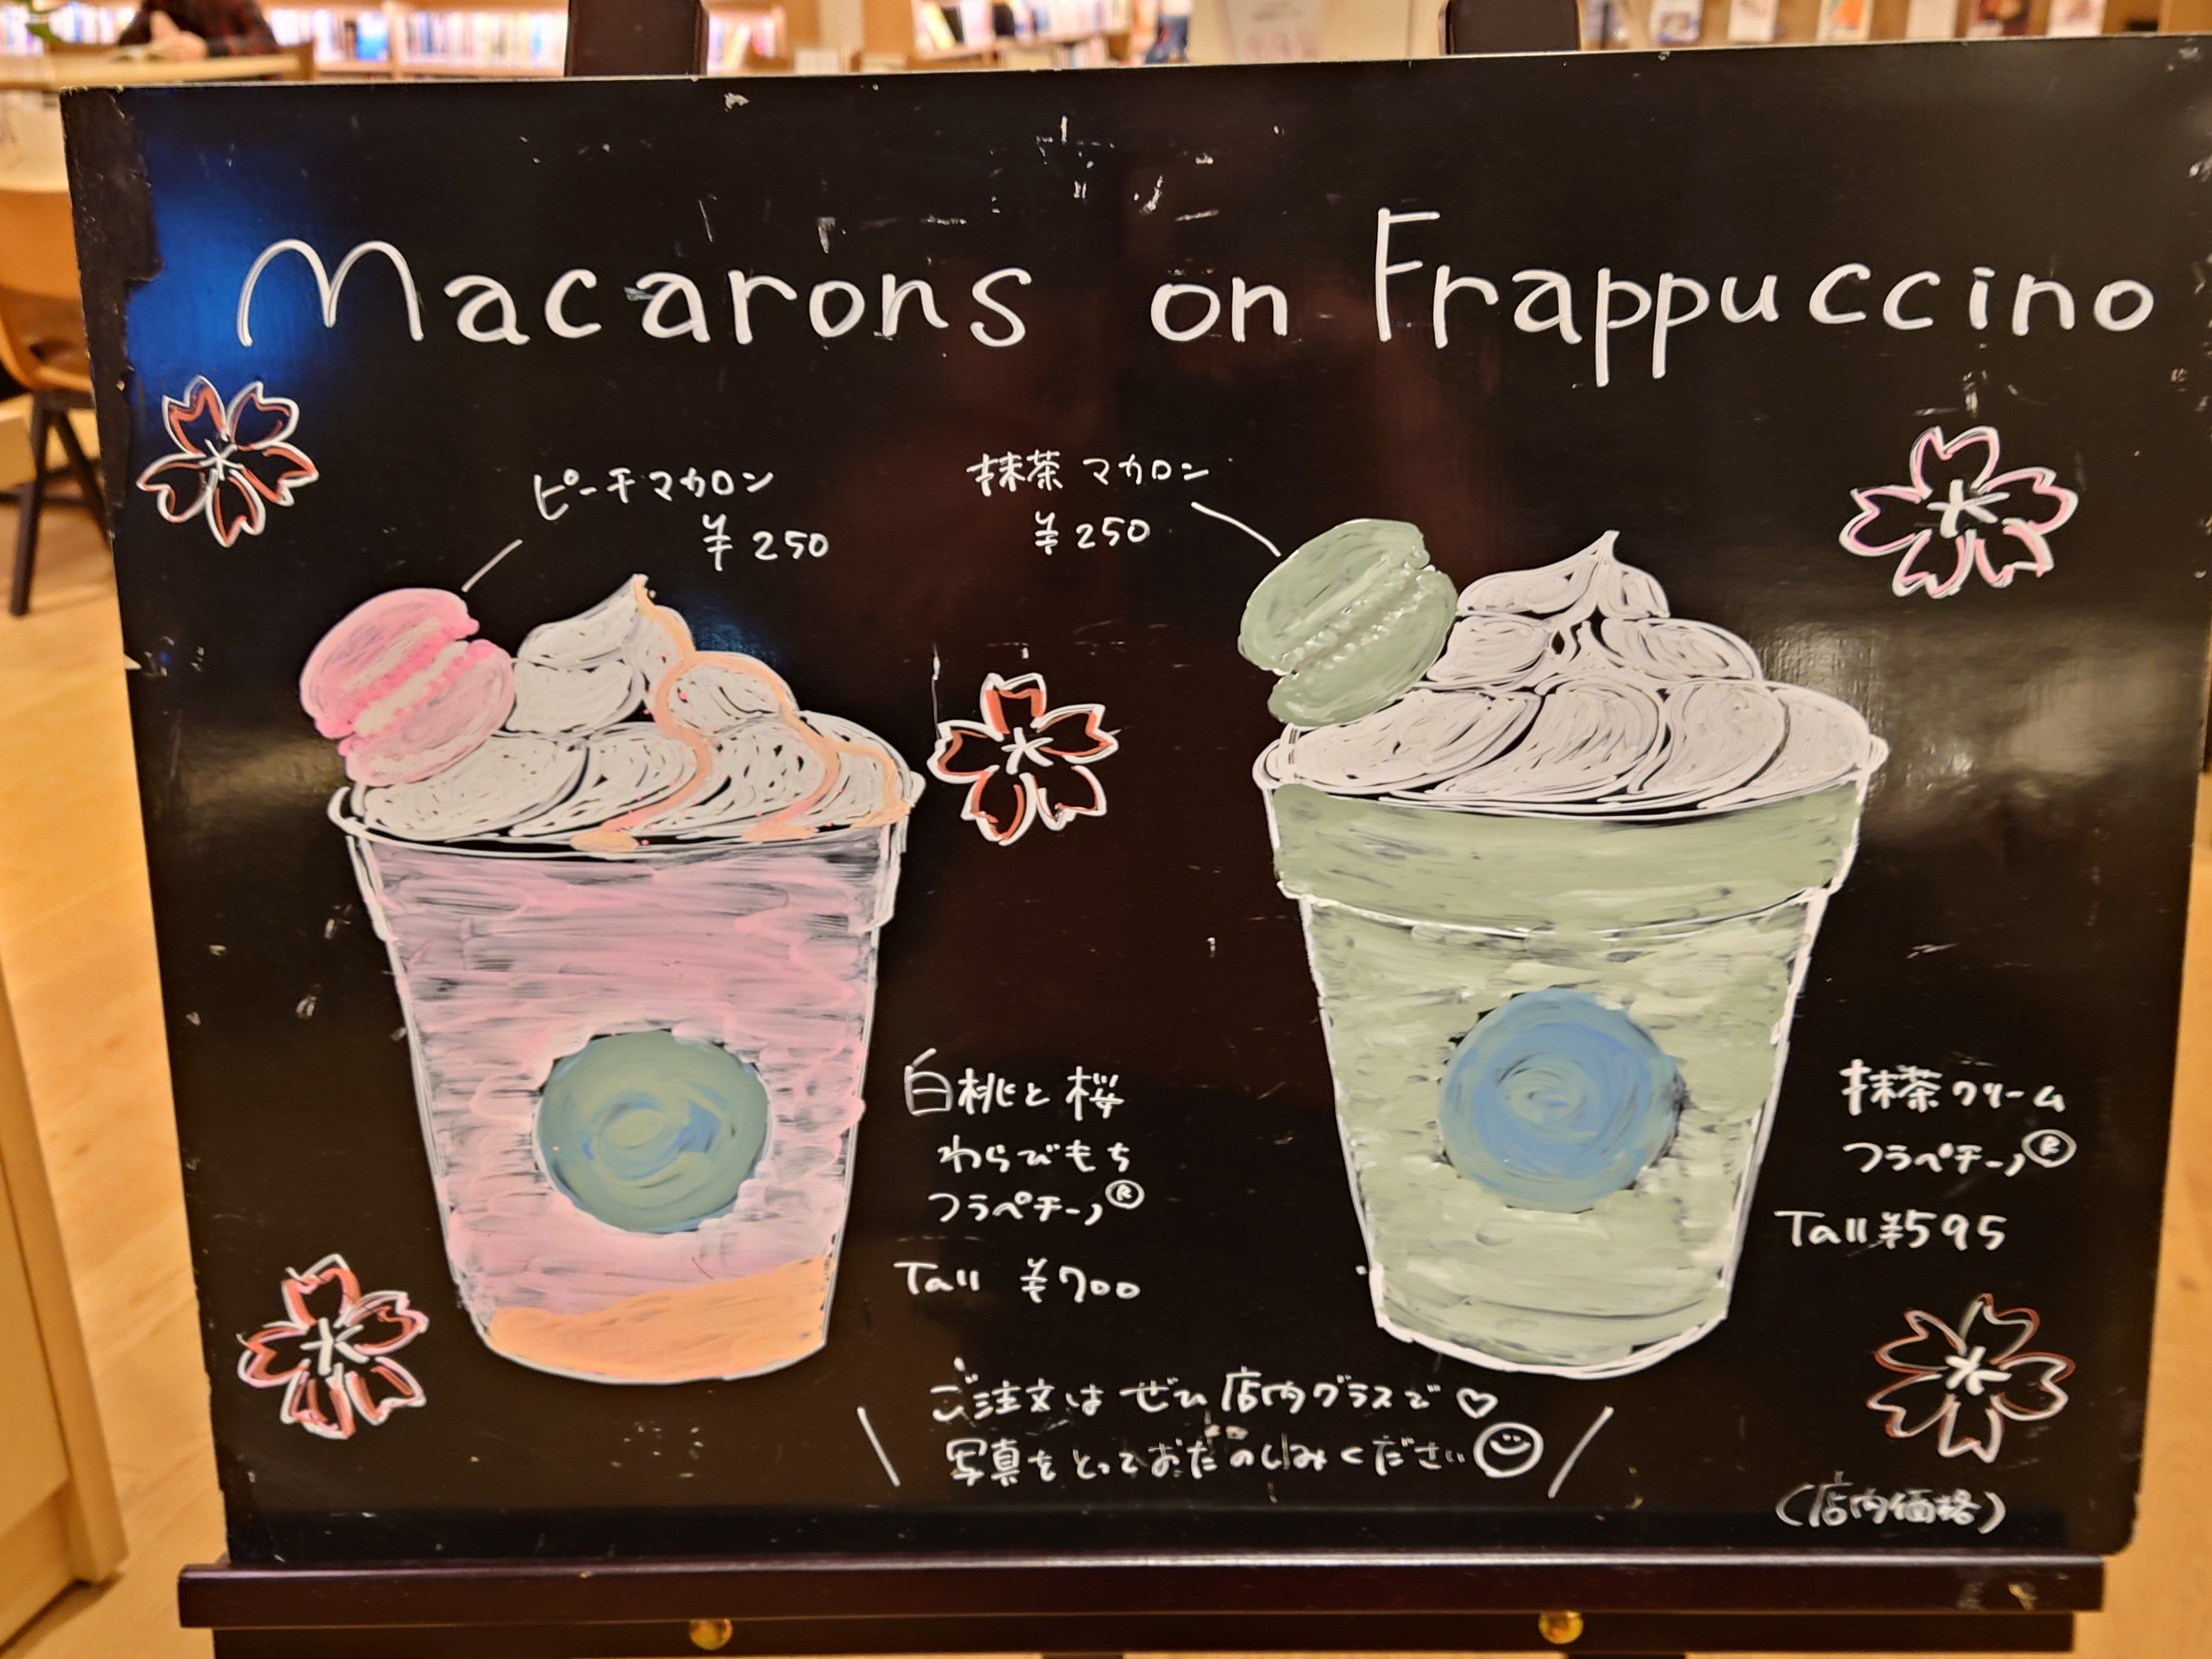 Macarons on Frappuccino
ピーチマカロン
¥250
抹茶マカロン
¥250
白桃と桜
わらびもち
フラペチーノ®
Tall ¥700
抹茶クリーム
フラペチーノ®
Tall ¥595
ご注文はぜひ店内グラスで♡
写真をとっておたのしみください☺
(店内価格)